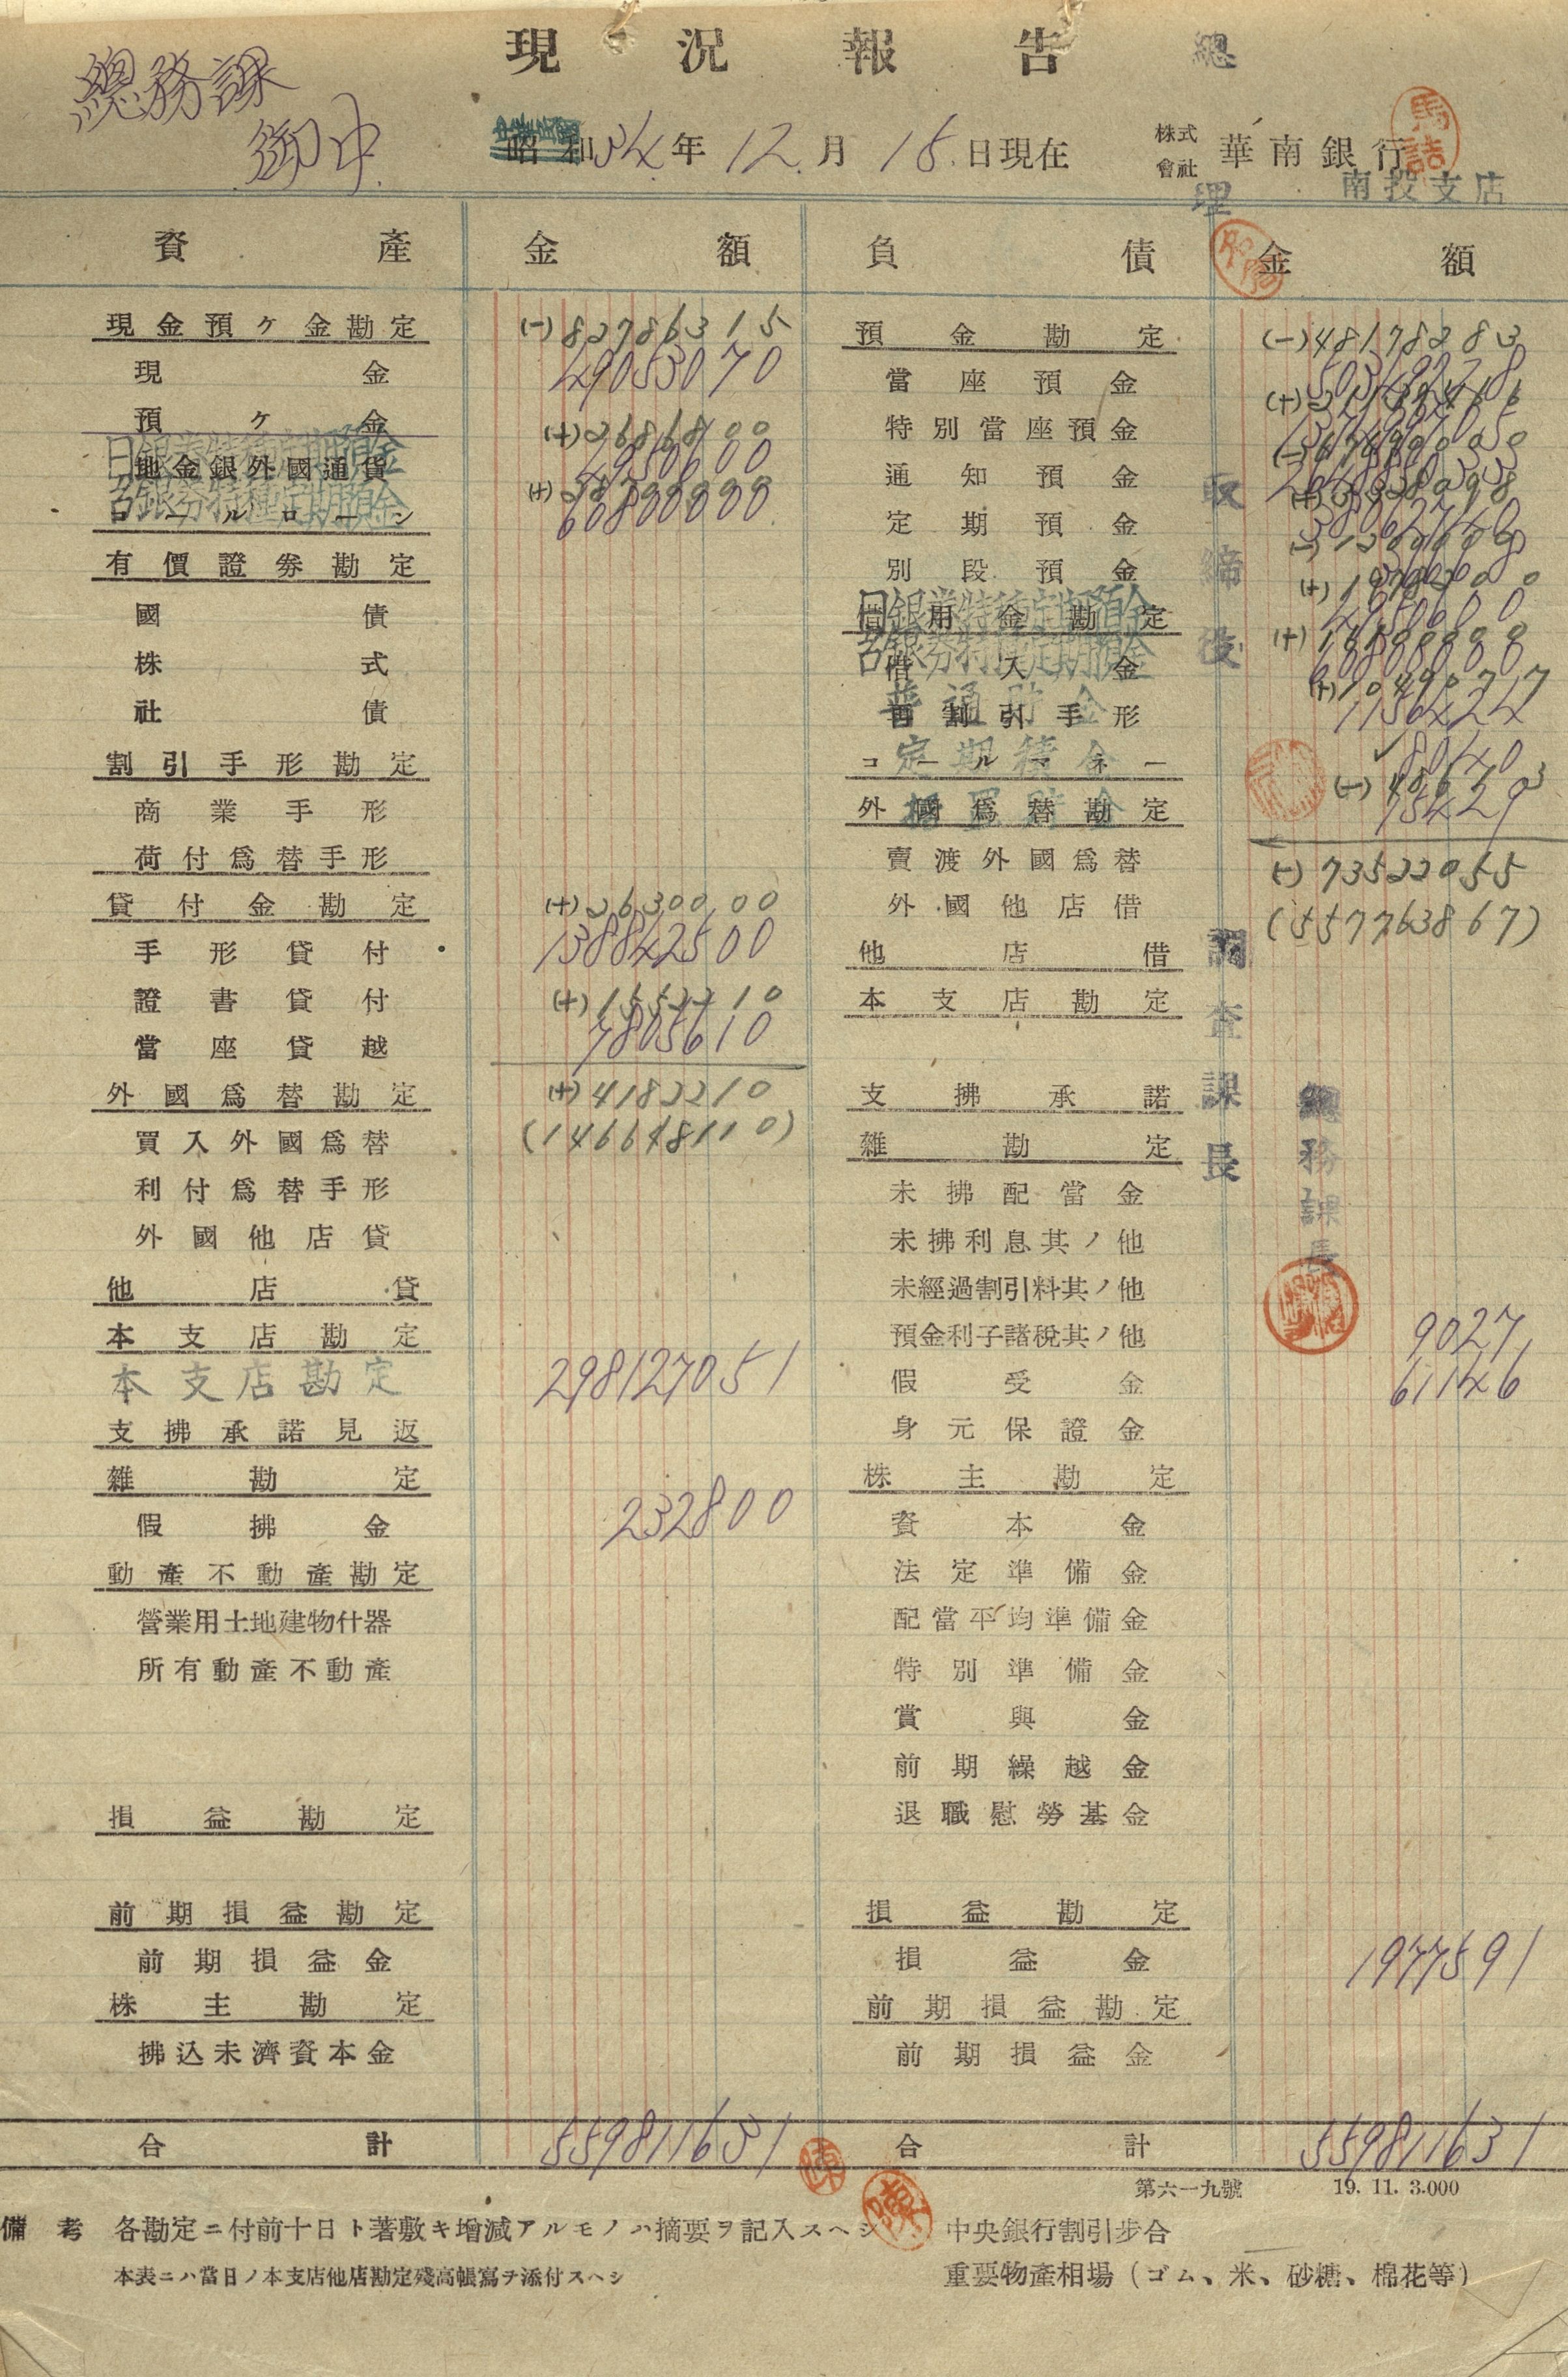 現況報告
總
總務課
御中
年12月15日現在
株式會社 華南銀行
南投支店
理
資產 金額 負債 金額
現金預ケ金勘定 (-)82786315
現金 49053070
預ケ金 (+)2686800
日銀券特種定期預金 4950600
地金銀外國通貨
台銀券特種定期預金 60800000
コールローン
有價證券勘定
國債
株式
社債
割引手形勘定
商業手形
荷付爲替手形
貸付金勘定 (+)2630000
手形貸付 138842500
證書貸付 (+)1552210
當座貸越 7805610
外國爲替勘定 (+)4182210
買入外國爲替 (146648110)
利付爲替手形
外國他店貸
他店貸
本支店勘定
本支店勘定 298127051
支拂承諾見返
雜勘定
假拂金 232800
動產不動產勘定
營業用土地建物什器
所有動產不動產
損益勘定
前期損益勘定
前期損益金
株主勘定
拂込未濟資本金
合計 559811631
預金勘定 (-)48178283
當座預金
特別當座預金
通知預金
定期預金
別段預金
借用金勘定
日銀券特種定期預金 4950600
台銀券特種定期預金
借入金
普通貯金 1156424
再割引手形
定期積金 80140
コールマネー
据置貯金 75429
外國爲替勘定
賣渡外國爲替 (-)73522055
外國他店借 (557763867)
他店借
本支店勘定
支拂承諾
雜勘定
未拂配當金
未拂利息其ノ他
未經過割引料其ノ他
預金利子諸稅其ノ他 9027
假受金 61146
身元保證金
株主勘定
資本金
法定準備金
配當平均準備金
特別準備金
賞與金
前期繰越金
退職慰勞基金
損益勘定
損益金 1977591
前期損益勘定
前期損益金
合計 559811631
取締役
調查課長
總務課長
第六一九號 19. 11. 3.000
備考 各勘定ニ付前十日ト著敷キ增減アルモノハ摘要ヲ記入スヘシ
本表ニハ當日ノ本支店他店勘定殘高帳寫ヲ添付スヘシ
中央銀行割引步合
重要物產相場（ゴム、米、砂糖、棉花等）